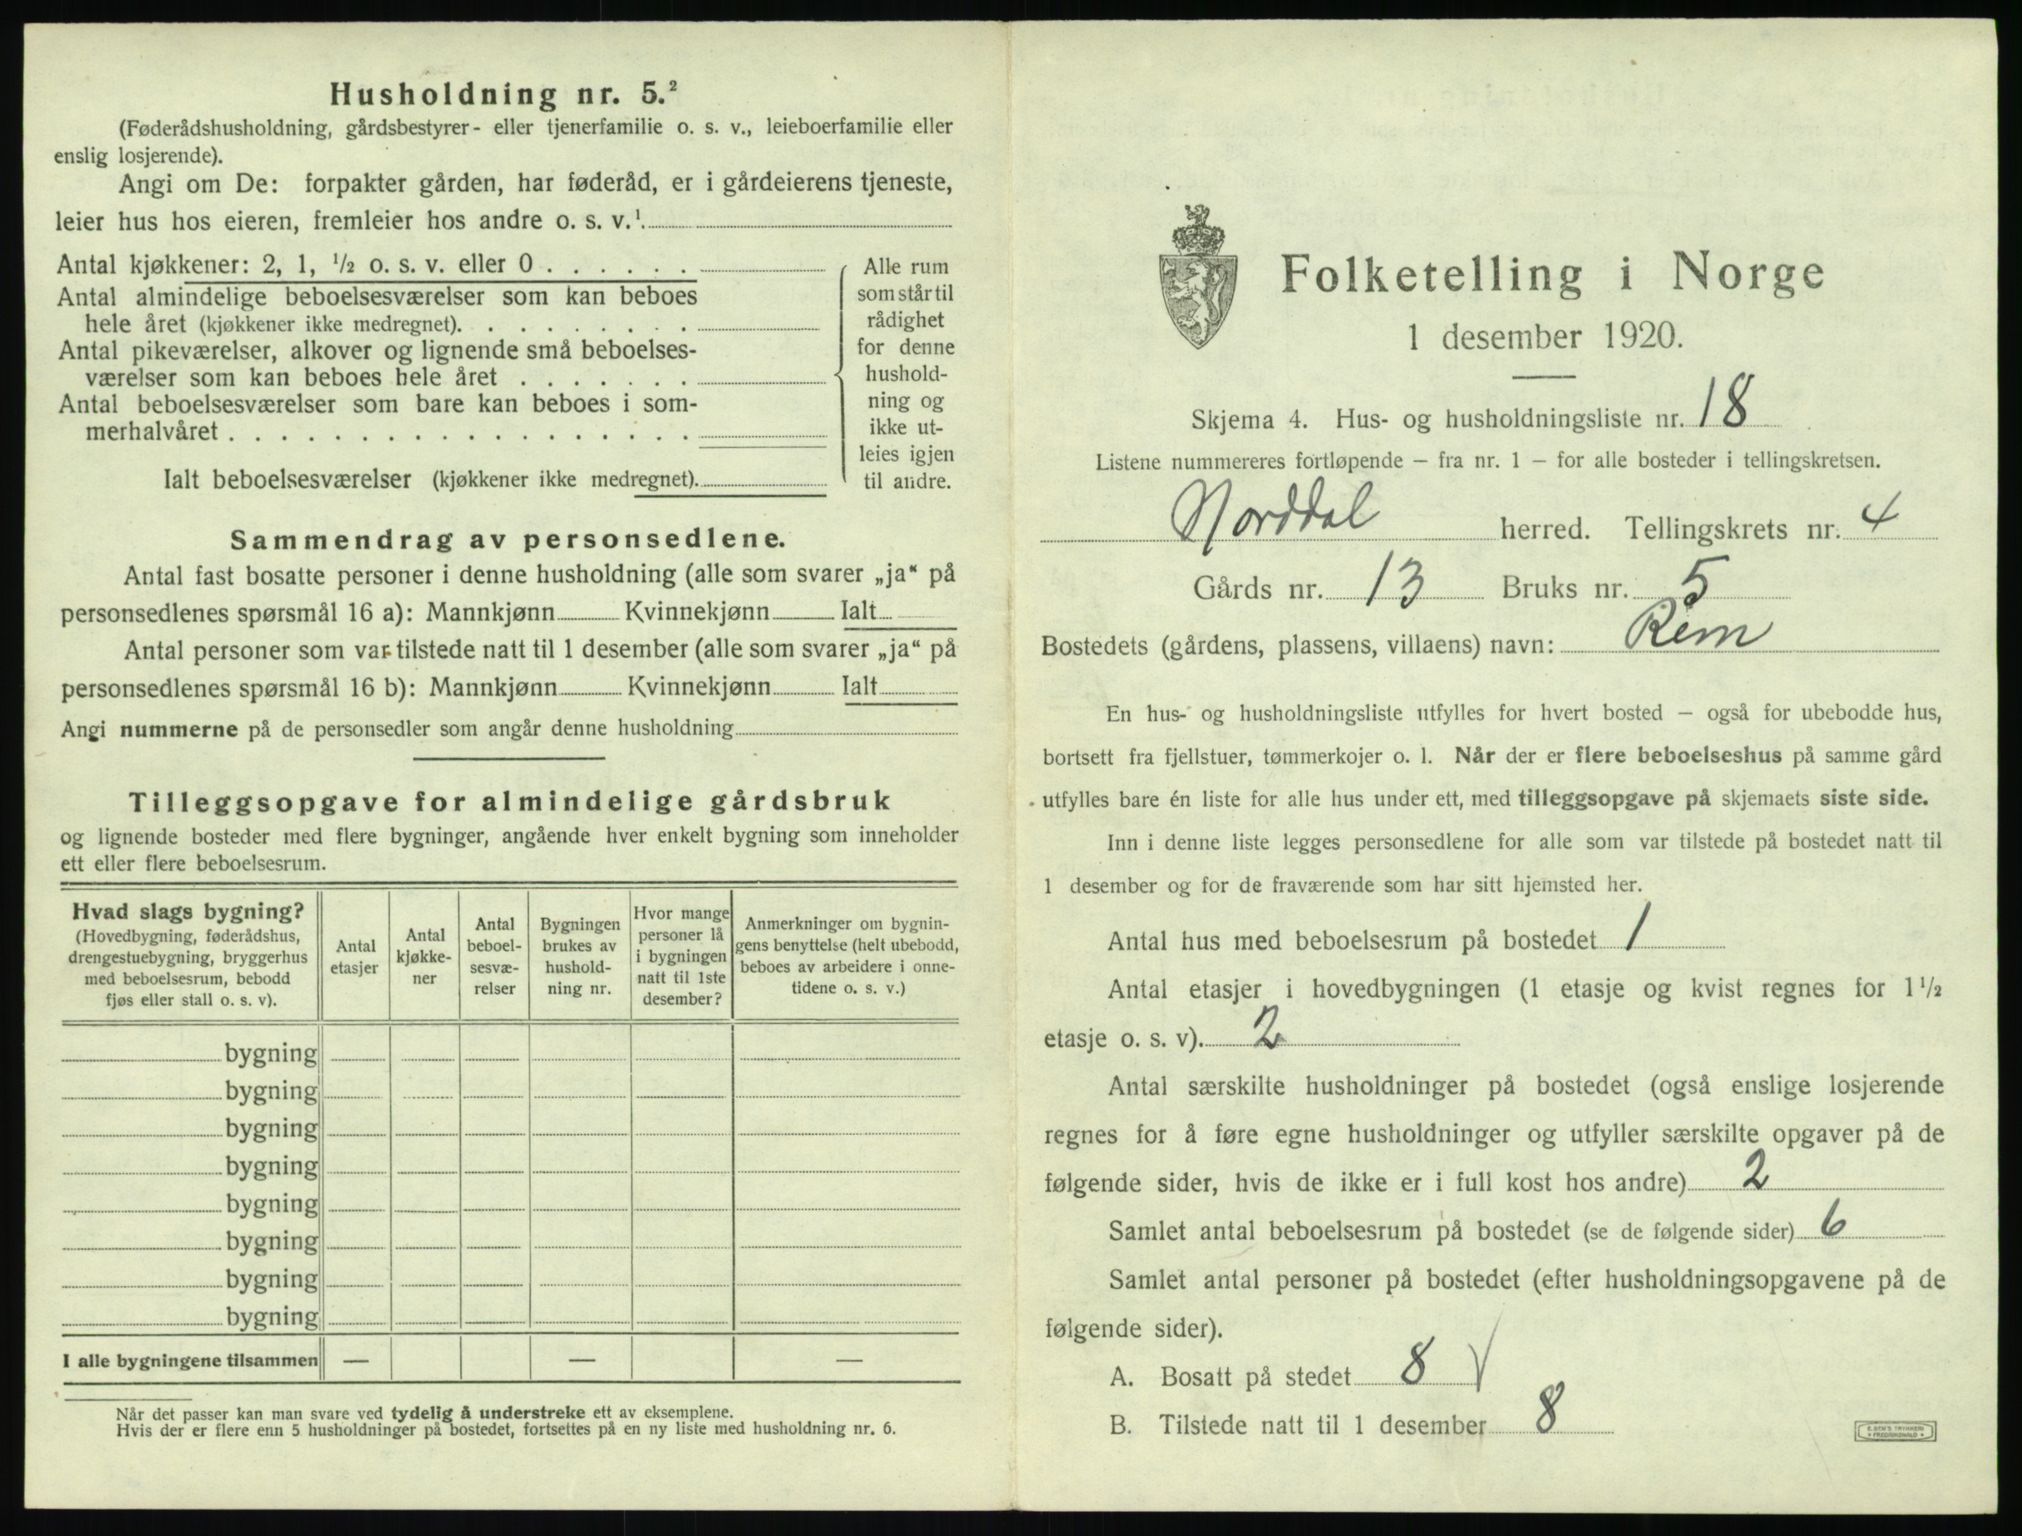 Husholdning nr. 5.²
(Føderådshusholdning, gårdsbestyrer- eller tjenerfamilie o. s. v., leieboerfamilie eller
enslig losjerende).
Angi om De: forpakter gården, har føderåd, er i gårdeierens tjeneste,
leier hus hos eieren, fremleier hos andre o. s. v.¹
Antal kjøkkener: 2, 1, ½ o. s. v. eller 0 . . . . . .
Antal almindelige beboelsesværelser som kan beboes
hele året (kjøkkener ikke medregnet). . . . . . . . .
Antal pikeværelser, alkover og lignende små beboelses-
værelser som kan beboes hele året . . . . . . .
Antal beboelsesværelser som bare kan beboes i som-
merhalvåret . . . . . . . . . . . . . . . . . .
Ialt beboelsesværelser (kjøkkener ikke medregnet).
Alle rum
som står til
rådighet
for denne
hushold-
ning og
ikke ut-
leies igjen
til andre.
Sammendrag av personsedlene.
Antal fast bosatte personer i denne husholdning (alle som svarer „ja“ på
personsedlenes spørsmål 16 a): Mannkjønn Kvinnekjønn Ialt
Antal personer som var tilstede natt til 1 desember (alle som svarer „ja“ på
personsedlenes spørsmål 16 b): Mannkjønn Kvinnekjønn Ialt
Angi nummerne på de personsedler som angår denne husholdning
Tilleggsopgave for almindelige gårdsbruk
og lignende bosteder med flere bygninger, angående hver enkelt bygning som inneholder
ett eller flere beboelsesrum.
Hvad slags bygning?
(Hovedbygning, føderådshus,
drengestuebygning, bryggerhus
med beboelsesrum, bebodd
fjøs eller stall o. s. v).
Antal
etasjer
Antal
kjøkke-
ner
Antal
beboel-
sesvæ-
relser
Bygningen
brukes av
hushold-
ning nr.
Hvor mange
personer lå
i bygningen
natt til 1ste
desember?
Anmerkninger om bygnin-
gens benyttelse (helt ubebodd,
beboes av arbeidere i onne-
tidene o. s. v.)
bygning
bygning
bygning
bygning
bygning
bygning
bygning
bygning
I alle bygningene tilsammen — — —
Når det passer kan man svare ved tydelig å understreke ett av eksemplene.
Hvis der er flere enn 5 husholdninger på bostedet, fortsettes på en ny liste med husholdning nr. 6.
Folketelling i Norge
1 desember 1920.
Skjema 4. Hus- og husholdningsliste nr. 18
Listene nummereres fortløpende – fra nr. 1 – for alle bosteder i tellingskretsen.
Norddal herred. Tellingskrets nr. 4
Gårds nr. 13 Bruks nr. 5
Bostedets (gårdens, plassens, villaens) navn: Rem
En hus- og husholdningsliste utfylles for hvert bosted – også for ubebodde hus,
bortsett fra fjellstuer, tømmerkojer o. l. Når der er flere beboelseshus på samme gård
utfylles bare én liste for alle hus under ett, med tilleggsopgave på skjemaets siste side.
Inn i denne liste legges personsedlene for alle som var tilstede på bostedet natt til
1 desember og for de fraværende som har sitt hjemsted her.
Antal hus med beboelsesrum på bostedet 1
Antal etasjer i hovedbygningen (1 etasje og kvist regnes for 1½
etasje o. s. v). 2
Antal særskilte husholdninger på bostedet (også enslige losjerende
regnes for å føre egne husholdninger og utfyller særskilte opgaver på de
følgende sider, hvis de ikke er i full kost hos andre) 2
Samlet antal beboelsesrum på bostedet (se de følgende sider) 6
Samlet antal personer på bostedet (efter husholdningsopgavene på de
følgende sider).
A. Bosatt på stedet 8 √
B. Tilstede natt til 1 desember 8